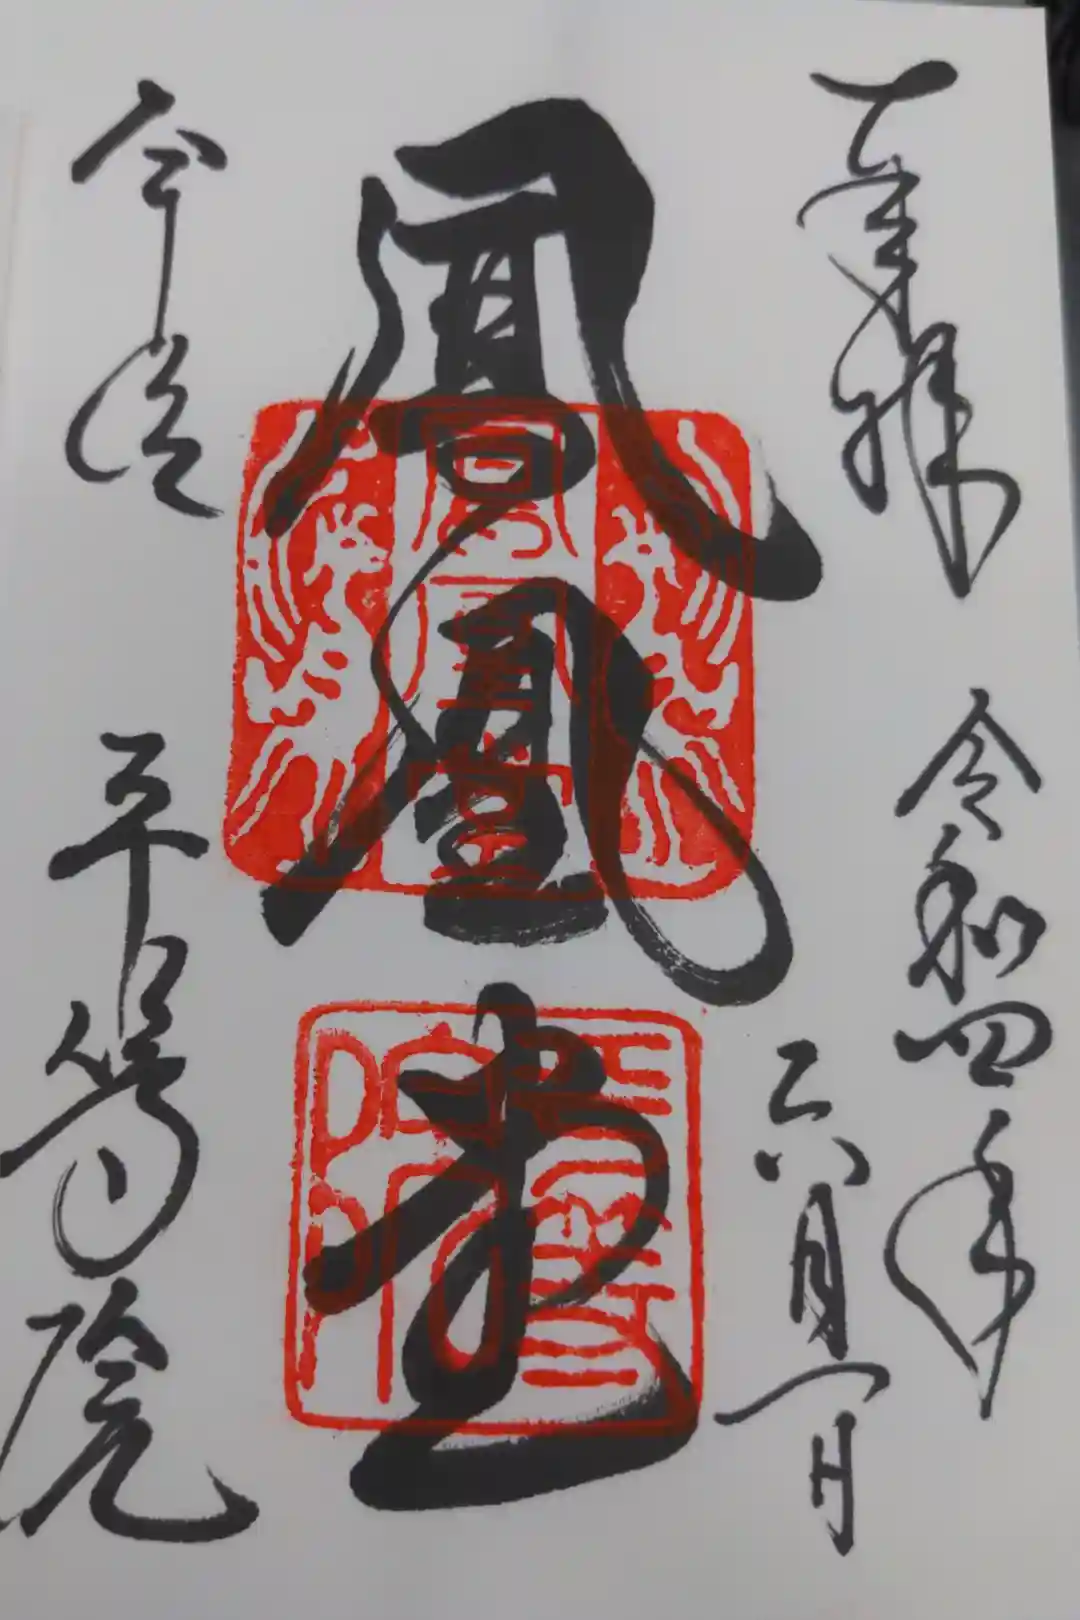 奉拝
令和四年
六月一日
鳳凰堂
平等院印
宇治
平等院